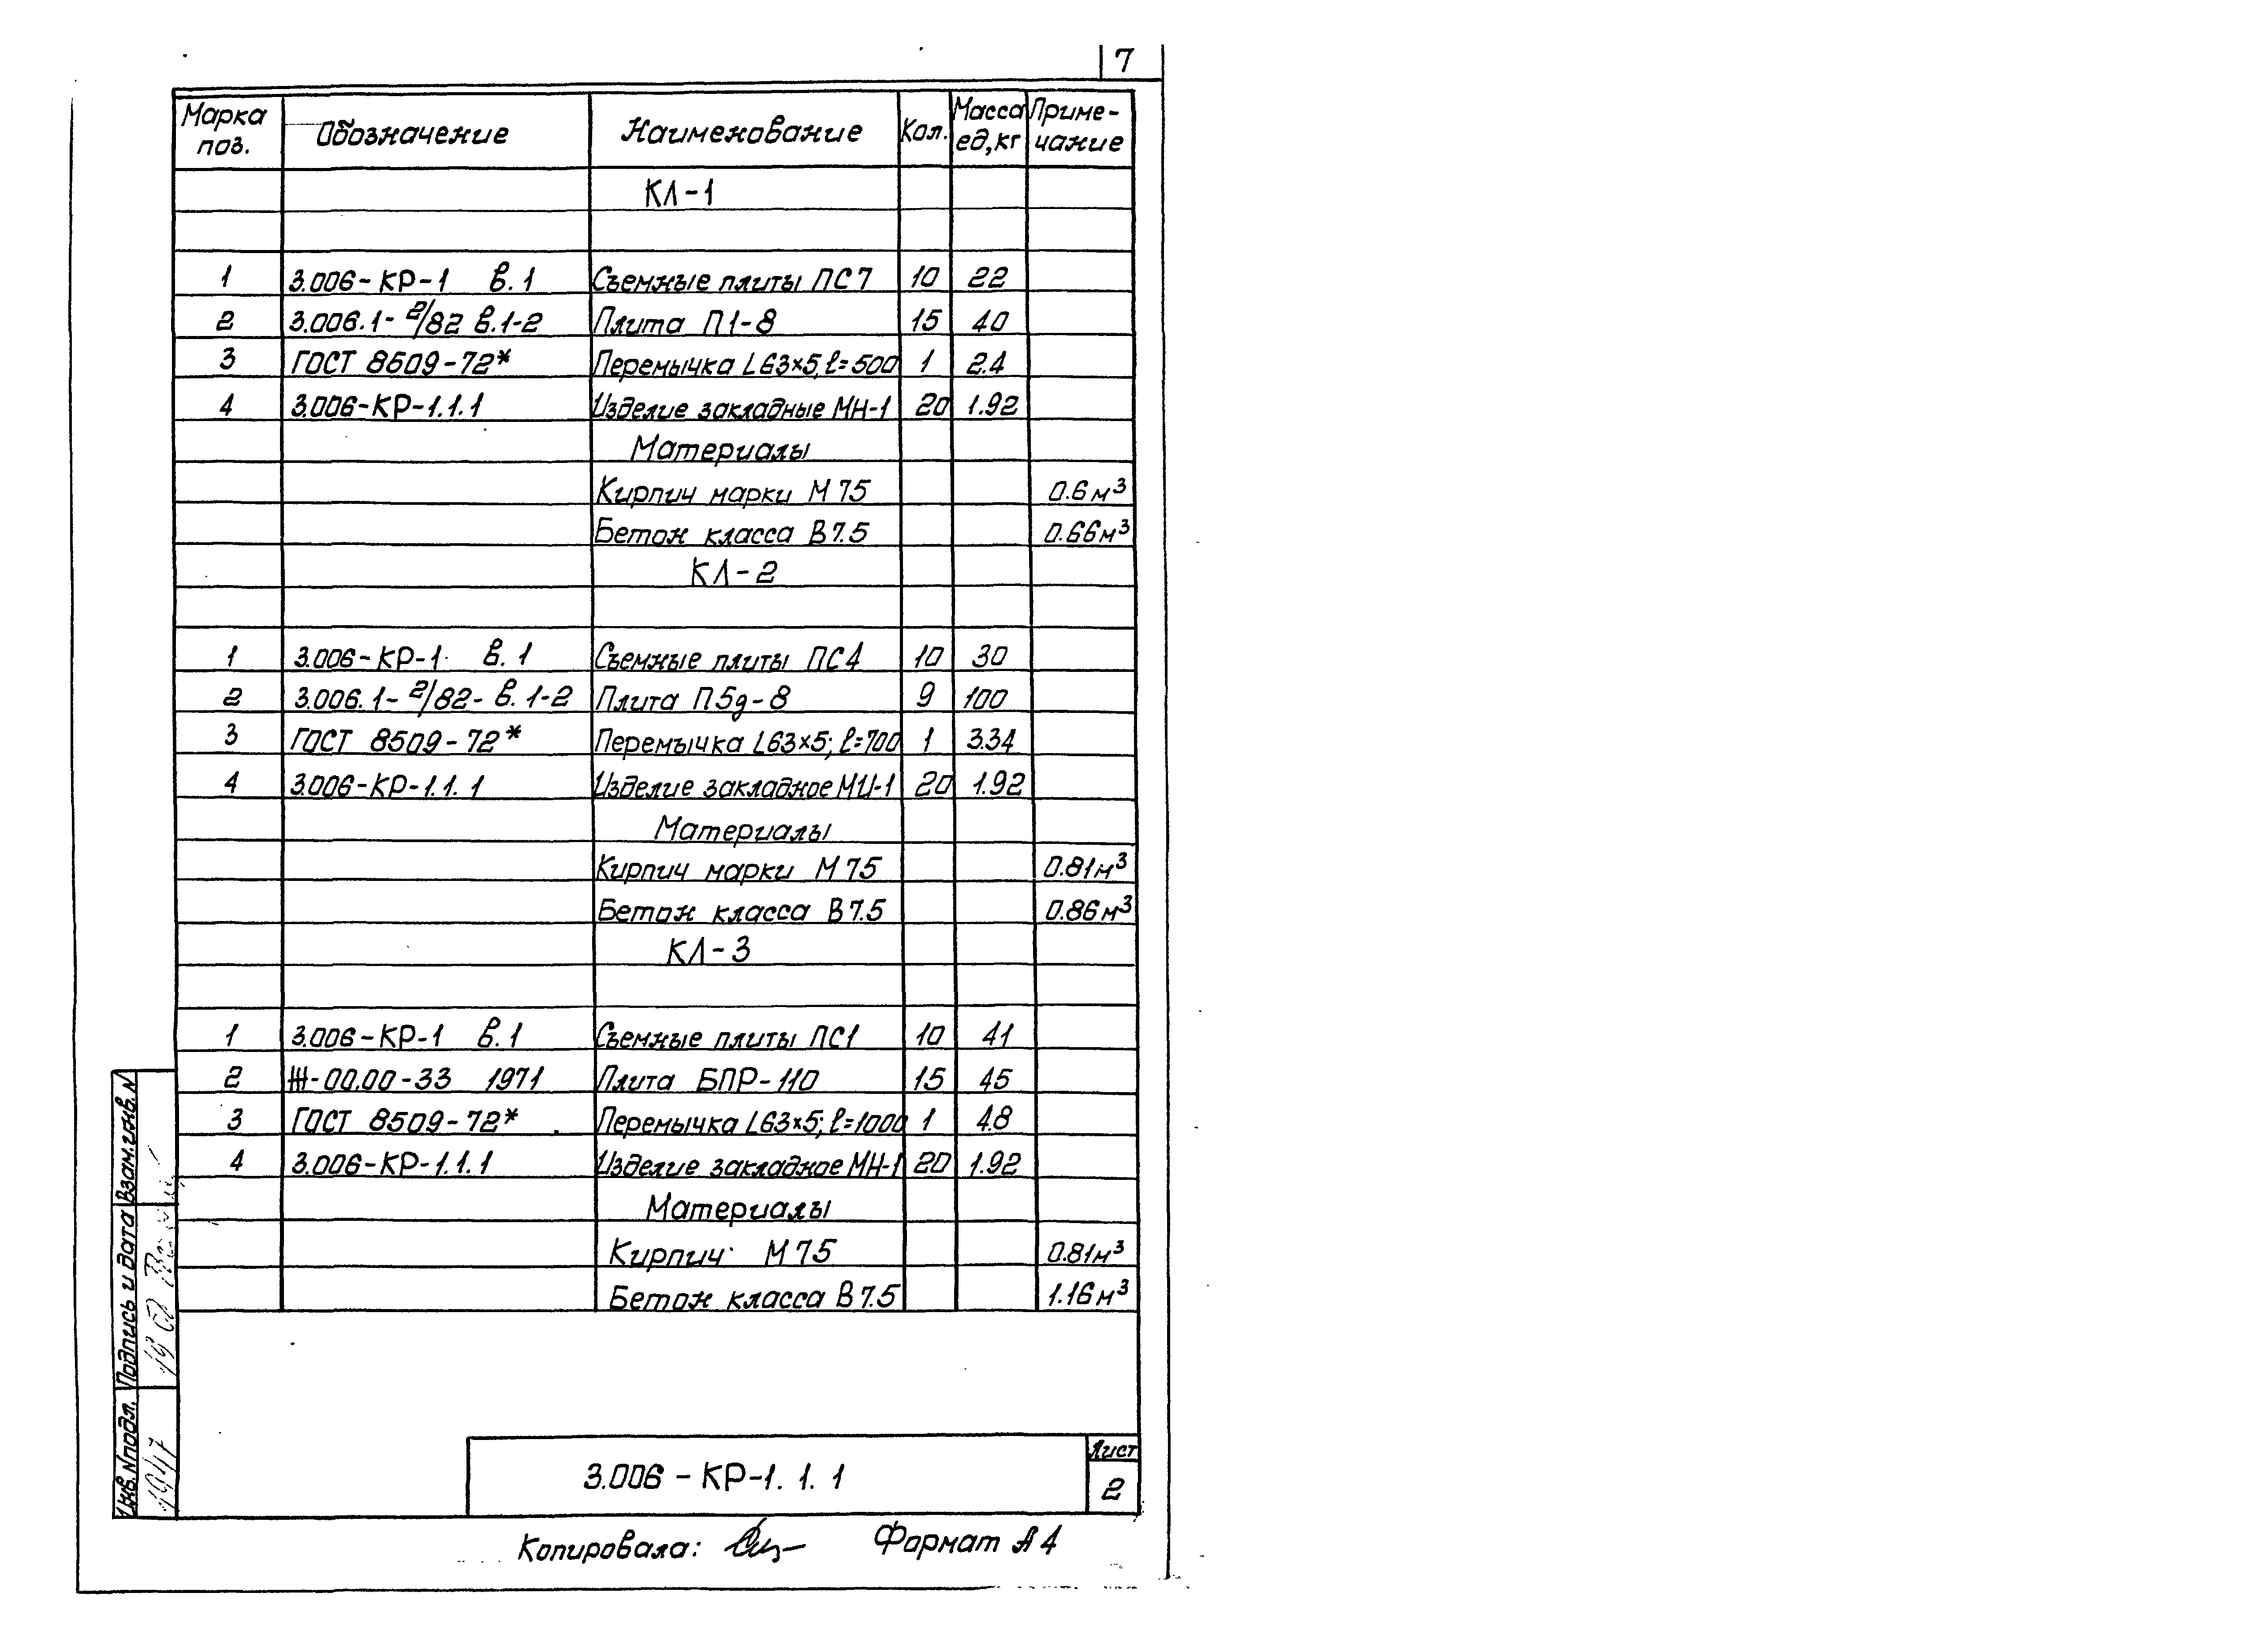 7
Марка поз. Обозначение Наименование Кол. Масса ед,кг Приме-чание
КЛ-1
1 3.006-КР-1 в.1 Съемные плиты ПС7 10 22
2 3.006.1-2/82 в.1-2 Плита П1-8 15 40
3 ГОСТ 8509-72* Перемычка L63×5, ℓ=500 1 2.4
4 3.006-КР-1.1.1 Изделие закладные МН-1 20 1.92
Материалы
Кирпич марки М 75 0.6 м³
Бетон класса В 7.5 0.66 м³
КЛ-2
1 3.006-КР-1 в. 1 Съемные плиты ПС4 10 30
2 3.006.1-2/82- в. 1-2 Плита П5д-8 9 100
3 ГОСТ 8509-72* Перемычка L63×5; ℓ=700 1 3.34
4 3.006-КР-1.1.1 Изделие закладное МН-1 20 1.92
Материалы
Кирпич марки М 75 0.81м³
Бетон класса В 7.5 0.86 м³
КЛ-3
1 3.006-КР-1 в.1 Съемные плиты ПС1 10 41
2 Ж-00.00-33 1971 Плита БПР-110 15 45
3 ГОСТ 8509-72* Перемычка L63×5; ℓ=1000 1 4.8
4 3.006-КР-1.1.1 Изделие закладное МН-1 20 1.92
Материалы
Кирпич М 75 0.81м³
Бетон класса В 7.5 1.16 м³
Взам.инв.N
Подпись и дата
Инв.Nподл.
3.006-КР-1.1.1
Лист
2
Копировала:
Формат А4